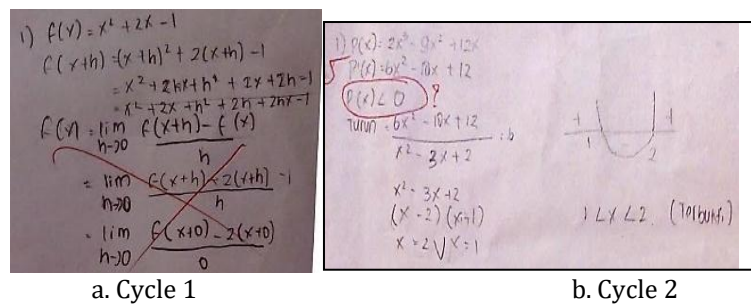 1) f(x) = x² + 2x - 1
f(x+h) = (x+h)² + 2(x+h) - 1
= x² + 2hx + h² + 2x + 2h - 1
= x² + 2x + h² + 2h + 2hx - 1
f(x) = lim h→0 f(x+h) - f(x) / h
= lim h→0 f(x+h) - 2(x+h) - 1 / h
= lim h→0 f(x+0) - 2(x+0) / 0
a. Cycle 1
1) P(x) = 2x³ - 9x² + 12x
P'(x) = 6x² - 18x + 12
P(x) < 0 ?
Turun = 6x² - 18x + 12 : 6
x² - 3x + 2
x² - 3x + 2
(x - 2) (x-1)
x = 2 V x = 1
+ - +
1 2
1 < x < 2 (Terbukti)
b. Cycle 2